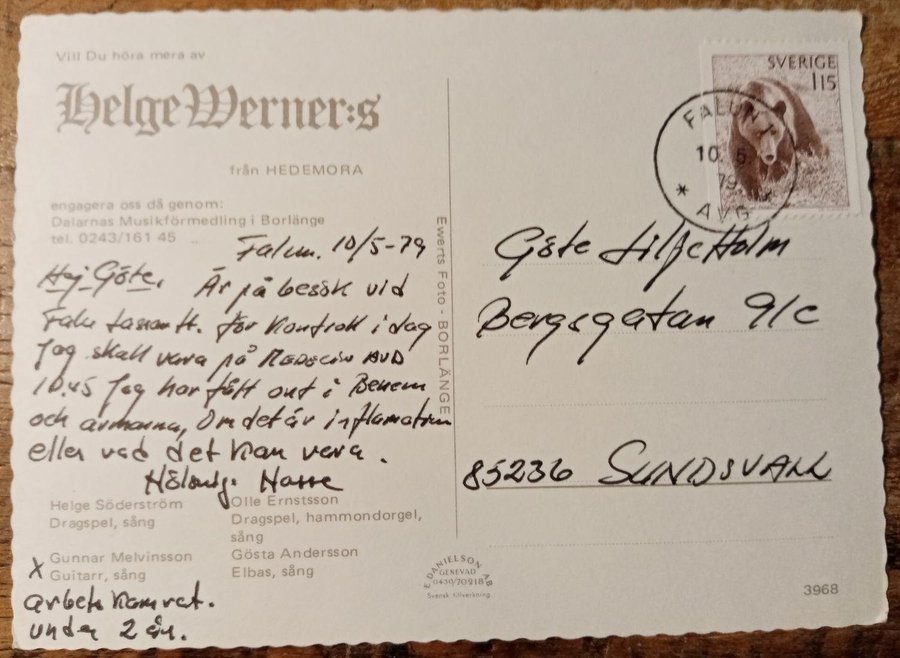 Vill Du höra mera av
Helge Werner:s
från HEDEMORA
engagera oss då genom:
Dalarnas Musikförmedling i Borlänge
tel. 0243/161 45
Falun. 10/5-79
Hej Göte. Är på besök vid
Falu lasarett. för kontroll i dag
Jag skall vara på MEDECIN AVD
10.45 Jag har fått ont i Benen
och armarna, Om det är inflamation
eller vad det kan vara.
Hälsning. Hasse
Helge Söderström
Dragspel, sång
X Gunnar Melvinsson
Guitarr, sång
arbetskamrat.
under 2 år.
Olle Ernstsson
Dragspel, hammondorgel,
sång
Gösta Andersson
Elbas, sång
Ewerts Foto - BORLÄNGE
E DANIELSON AB
GENEVAD
0430/70218
Svensk tillverkning
SVERIGE
115
FALUN 1
10. 5
79
* AVG
Göte Liljeholm
Bergsgatan 9/c
85236 SUNDSVALL
3968